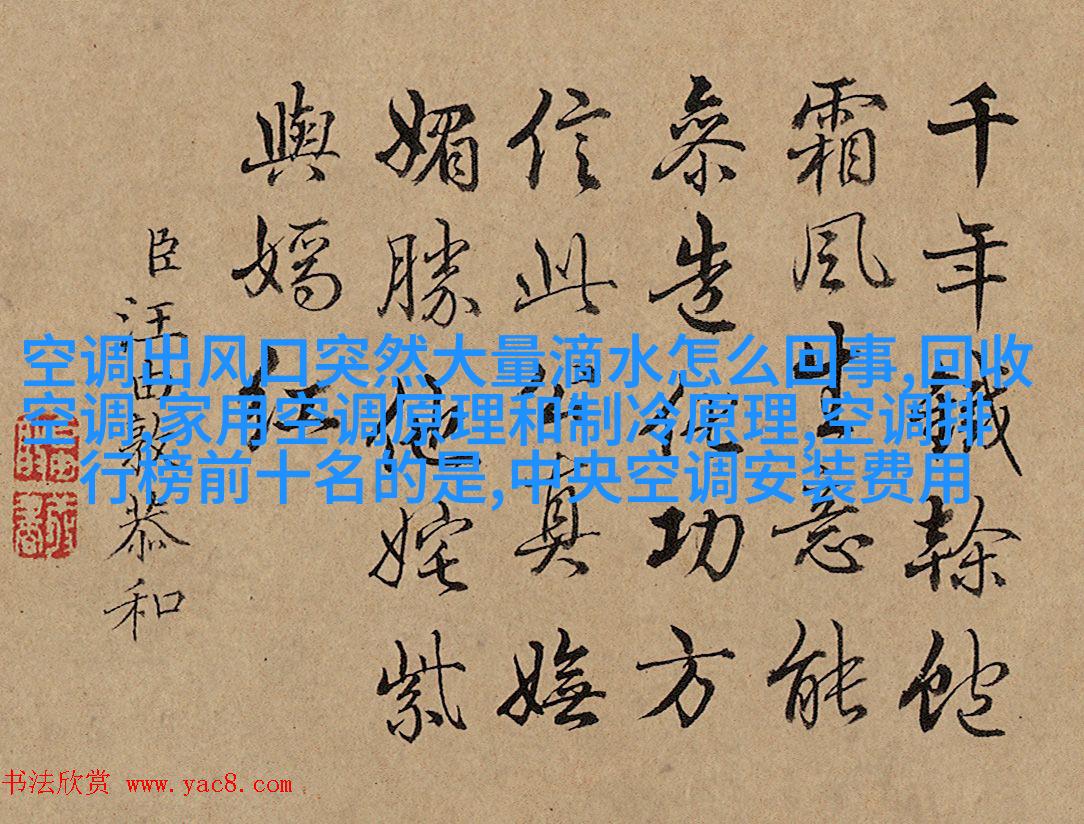 千年鐵幹飽
霜風生意能
參造化功方
信此真嫵
媚勝他姹紫
與嫣紅
臣汪由敦恭和
空调出风口突然大量滴水怎么回事,回收
空调,家用空调原理和制冷原理,空调排
行榜前十名的是,中央空调安装费用
书法欣赏 www.yac8.com